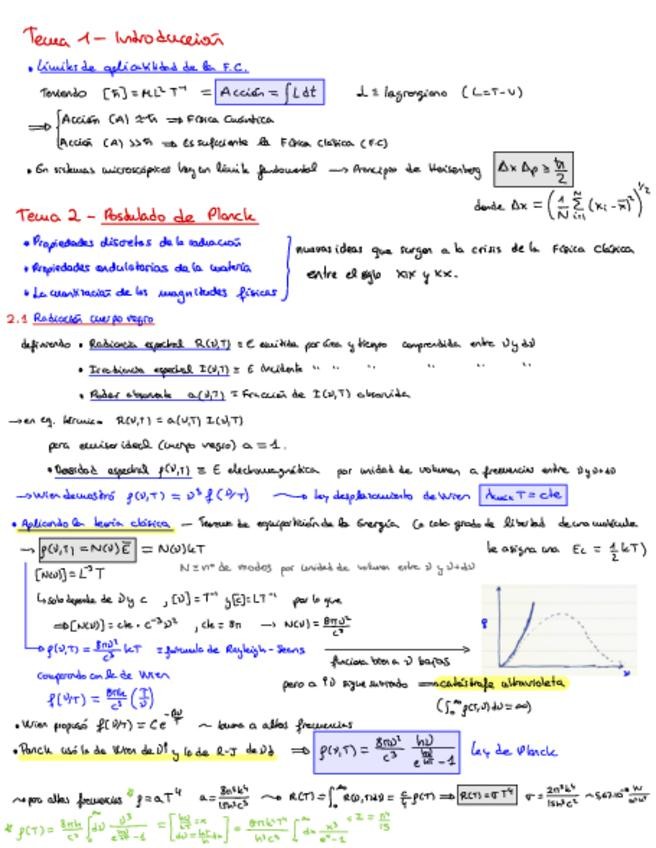 Tema 1 – Introducción
• Límites de aplicabilidad de la F.C.
Teniendo [ℏ] = ML²T⁻¹ = Acción = ∫L dt    L ≡ lagrangiano (L=T-U)
⇒ { Acción (A) ≈ ℏ ⇒ Física Cuántica
Acción (A) >> ℏ ⇒ es suficiente la Física Clásica (F.C)
• En sistemas microscópicos hay un límite fundamental → Principio de Heisenberg    Δx Δp ≥ ℏ/2
donde Δx = (1/N Σ_{i=1}^{N} (xᵢ - x̄)²)^{1/2}
Tema 2 – Postulado de Planck
• Propiedades discretas de la radiación
• Propiedades ondulatorias de la materia
• La cuantización de las magnitudes físicas
} nuevas ideas que surgen a la crisis de la Física Clásica
entre el siglo XIX y XX.
2.1 Radiación cuerpo negro
definiendo • Radiancia espectral R(ν,T) ≡ E emitida por área y tiempo comprendida entre ν y dν
• Irradiancia espectral I(ν,T) ≡ E incidente " " " " "
• Poder absorbente a(ν,T) ≡ Fracción de I(ν,T) absorvida
→ en eq. térmico R(ν,T) = a(ν,T) I(ν,T)
para emisor ideal (cuerpo negro) a = 1.
• Densidad espectral ρ(ν,T) ≡ E electromagnética por unidad de volumen a frecuencias entre ν y ν+dν
→ Wien demostró ρ(ν,T) = ν³ f(ν/T) ⟶ Ley desplazamiento de Wien    λmax T = cte
• Aplicando la teoría clásica – Teorema de equipartición de la Energía (a cada grado de libertad de una molécula
→ ρ(ν,T) = N(ν) Ē = N(ν)kT    le asigna una Ec = 1/2 kT)
[N(ν)] = L⁻³T    N ≡ nº de modos por unidad de volumen entre ν y ν+dν
↳ solo depende de ν y c, [ν] = T⁻¹ y [c] = LT⁻¹ por lo que
⇒ [N(ν)] = cte · c⁻³ν², cte = 8π → N(ν) = 8πν²/c³
→ ρ(ν,T) = 8πν²/c³ kT ≡ fórmula de Rayleigh-Jeans ⟶ funciona bien a ν bajas
comparando con la de Wien    pero a ↑ν sigue subiendo ⟹ catástrofe ultravioleta
f(ν/T) = 8πk/c³ (T/ν)    (∫₀^∞ ρ(T,ν)dν = ∞)
ρ
ν
• Wien propuso f(ν/T) = C e^{-βν/T} ~ buena a altas frecuencias
• Planck usó la de Wien de ν↑ y la de R-J de ν↓ ⟹ ρ(ν,T) = 8πν²/c³ hν/(e^{hν/kT} - 1)    Ley de Planck
→ para altas frecuencias * ρ = aT⁴    a = 8π⁵k⁴/15h³c³ ⟶ R(T) = ∫₀^∞ R(ν,T)dν = c/4 ρ(T) ⟹ R(T) = σT⁴    σ = 2π⁵k⁴/15h³c² ~ 5,67·10⁻⁸ W/m²K⁴
* ρ(T) = 8πh/c³ ∫₀^∞ dν ν³/(e^{hν/kT} - 1) = [hν/kT = x] = 8πk⁴T⁴/h³c³ ∫₀^∞ dx x³/(eˣ - 1)